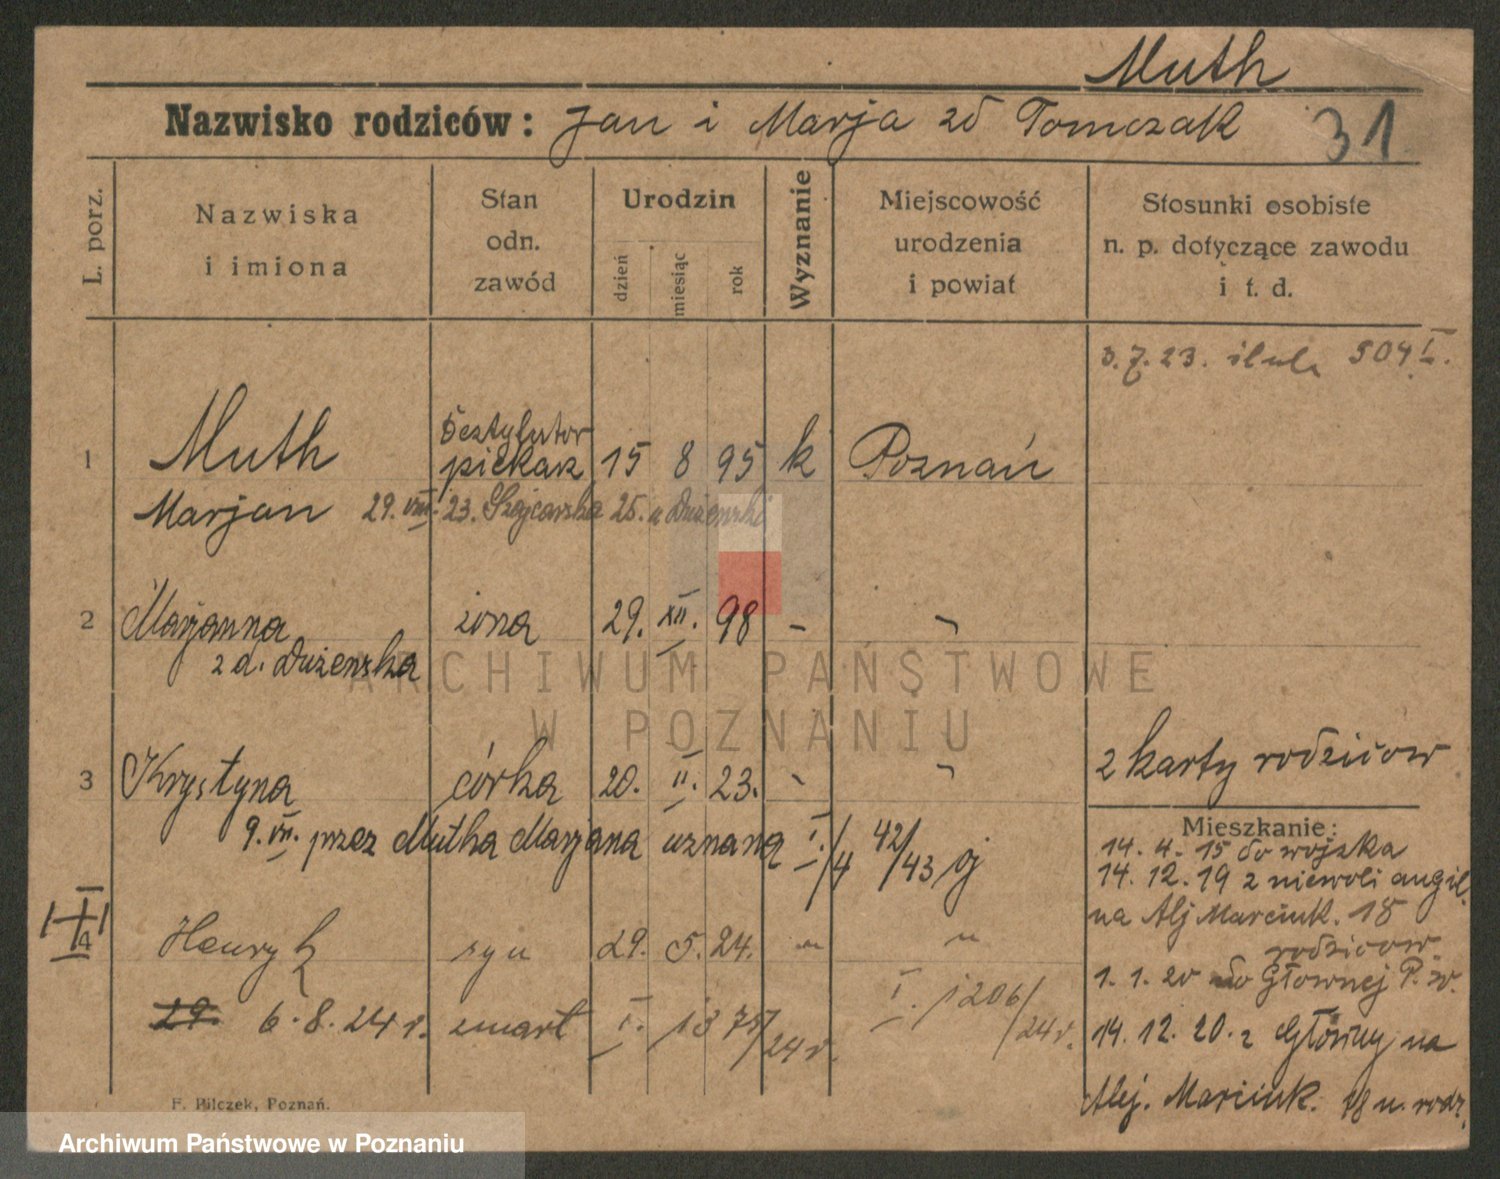 Muth
Nazwisko rodziców: Jan i Marja zd Tomczak 31
L. porz.
Nazwiska i imiona
Stan odn. zawód
Urodzin
dzień miesiąc rok
Wyznanie
Miejscowość urodzenia i powiat
Stosunki osobiste n. p. dotyczące zawodu i t. d.
3.7.23. 504 I.
1 Muth piekarz 15 8 95 k Poznań
Marjan 29. VIII. 23. 25. u Dużenski
2 Marjanna żona 29. XII. 98 - "
z d. Dużenska
ARCHIWUM PAŃSTWOWE
W POZNANIU
3 Krystyna córka 20. II. 23. - "
9. VII. przez Mutha Marjana uznana I./4 42/43
z karty rodziców
Mieszkanie:
14. 4. 15 do wojska
14. 12. 19 z niewoli angil.
na Alj Marcink. 18
rodziców.
1. 1. 20 do Głownej P. w.
14. 12. 20. z Głowny na
Alej. Marcink. 18 u. rodz.
I
4 Henryk syn 29. 5. 24. " "
29. 6. 8. 24 r. zmarł I. 1375/24 r. I. 1206/24 r.
F. Pilczek, Poznań.
Archiwum Państwowe w Poznaniu